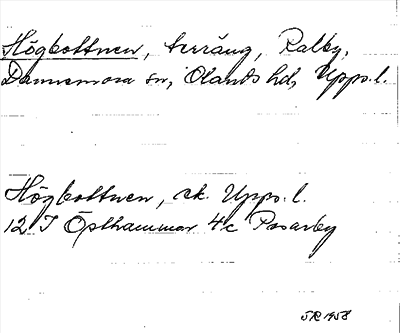 Högbottnen, terräng, Ralby,
Dannemora sn, Olands hd, Upps. l.
Högbottnen, ek. Upps. l.
12 I Östhammar 4c Posarby
SR 1958